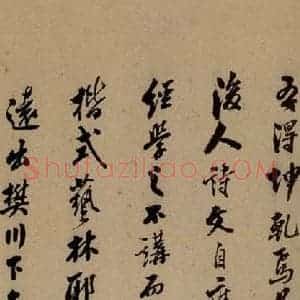 吾得坤乾焉
後人詩文自
經學之不講而
楷式藝林耶
遠出樊川下
Shufaziliao.COM